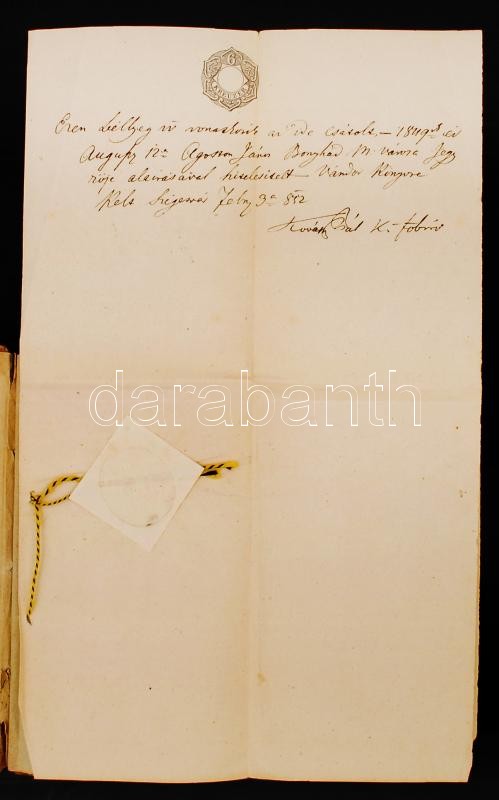 6
Ezen béllyeg ív vonatkozik az ide csatolt, – 1849dik évi
August 12n Agoston János Bonyhád M: városa Jegy
zője aláirásával hitelesitett – Vándor Könyvre
Kelt Febr 3a 852
Kováts Pál K.
darabanth